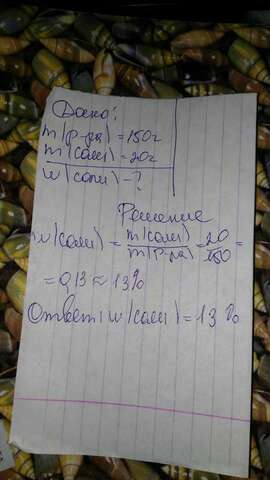 Дано:
m(р-ра) = 150г
m(соли) = 20г
w(соли) - ?
Решение
w(соли) = m(соли)/m(р-ра) = 20/150 =
= 0,13 ≈ 13%
Ответ: w(соли) = 13%